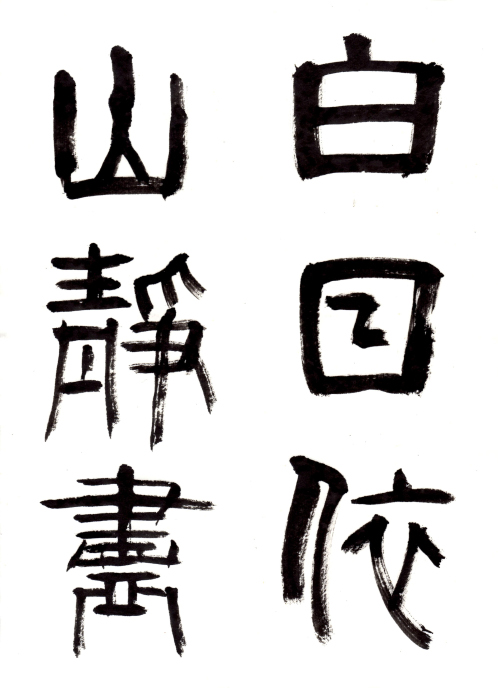 白日依
山靜